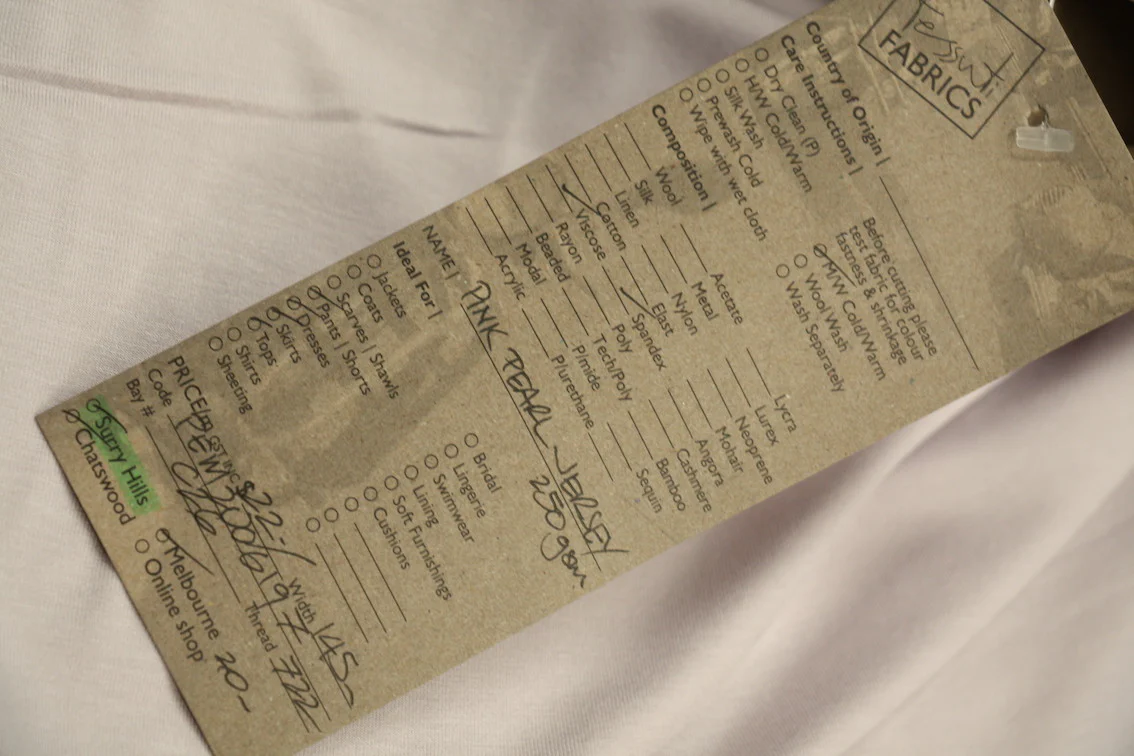 Tessuti
FABRICS
Country of Origin |
Care Instructions |
Dry Clean (P)
H/W Cold/Warm
Silk Wash
Prewash Cold
Wipe with wet cloth
Before cutting please
test fabric for colour
fastness & shrinkage
M/W Cold/Warm
Wool Wash
Wash Separately
Composition |
Wool
Silk
Linen
Cotton
Viscose
Rayon
Beaded
Modal
Acrylic
Acetate
Metal
Nylon
Elast
Spandex
Poly
Tech/Poly
P/mide
P/urethane
Lycra
Lurex
Neoprene
Mohair
Angora
Cashmere
Bamboo
Sequin
NAME | PINK PEARL JERSEY
250gsm
Ideal For |
Jackets
Coats
Scarves | Shawls
Pants | Shorts
Dresses
Skirts
Tops
Shirts
Sheeting
Bridal
Lingerie
Swimwear
Lining
Soft Furnishings
Cushions
PRICE $22- Width 145
Code Thread 722
Bay #
Surry Hills
Chatswood
Melbourne 20-
Online shop